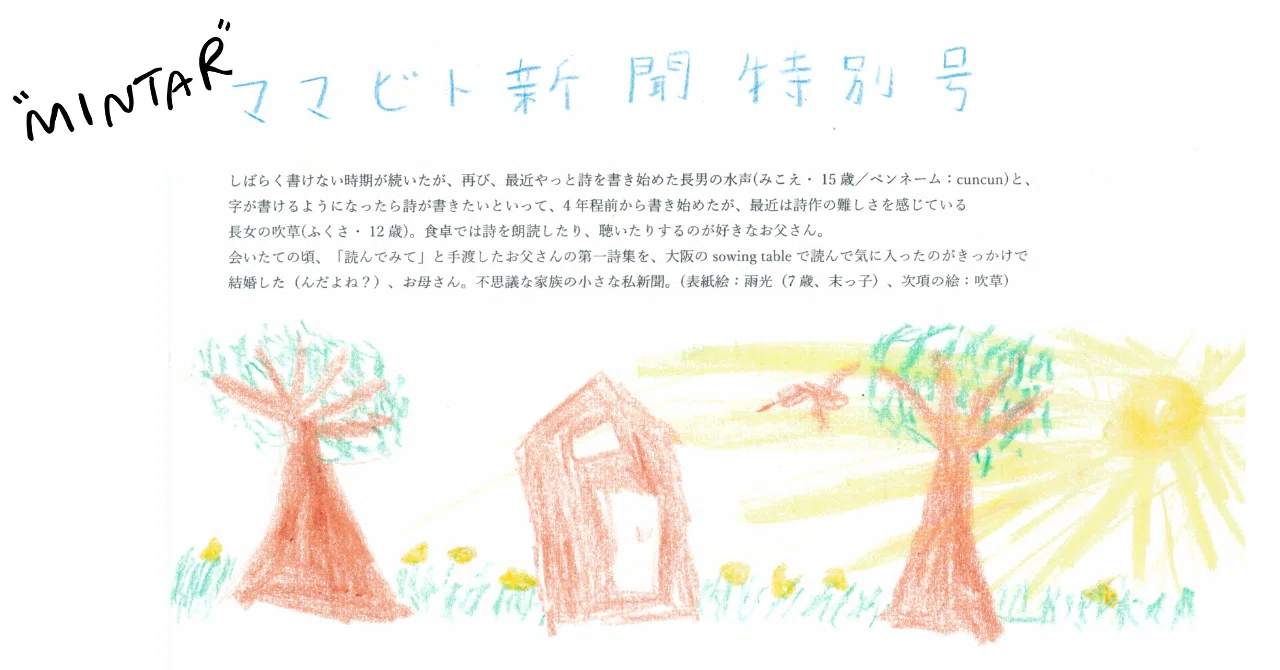 "MINTAR"
ママビト新聞特別号
しばらく書けない時期が続いたが、再び、最近やっと詩を書き始めた長男の水声(みこえ・ 15 歳／ペンネーム：cuncun)と、
字が書けるようになったら詩が書きたいといって、4 年程前から書き始めたが、最近は詩作の難しさを感じている
長女の吹草(ふくさ・ 12 歳)。食卓では詩を朗読したり、聴いたりするのが好きなお父さん。
会いたての頃、「読んでみて」と手渡したお父さんの第一詩集を、大阪の sowing table で読んで気に入ったのがきっかけで
結婚した（んだよね？）、お母さん。不思議な家族の小さな私新聞。(表紙絵：雨光（7 歳、末っ子）、次項の絵：吹草)